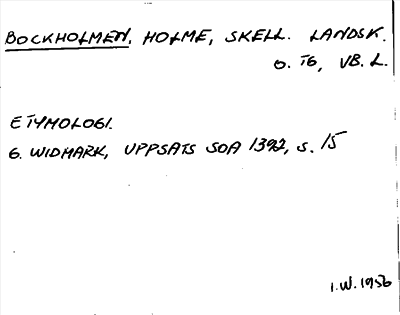 BOCKHOLMEN. HOLME, SKELL. LANDSK.
O. TG, VB. L.
ETYMOLOGI.
G. WIDMARK, UPPSATS SOA 1392, S. 15
I.W. 1956